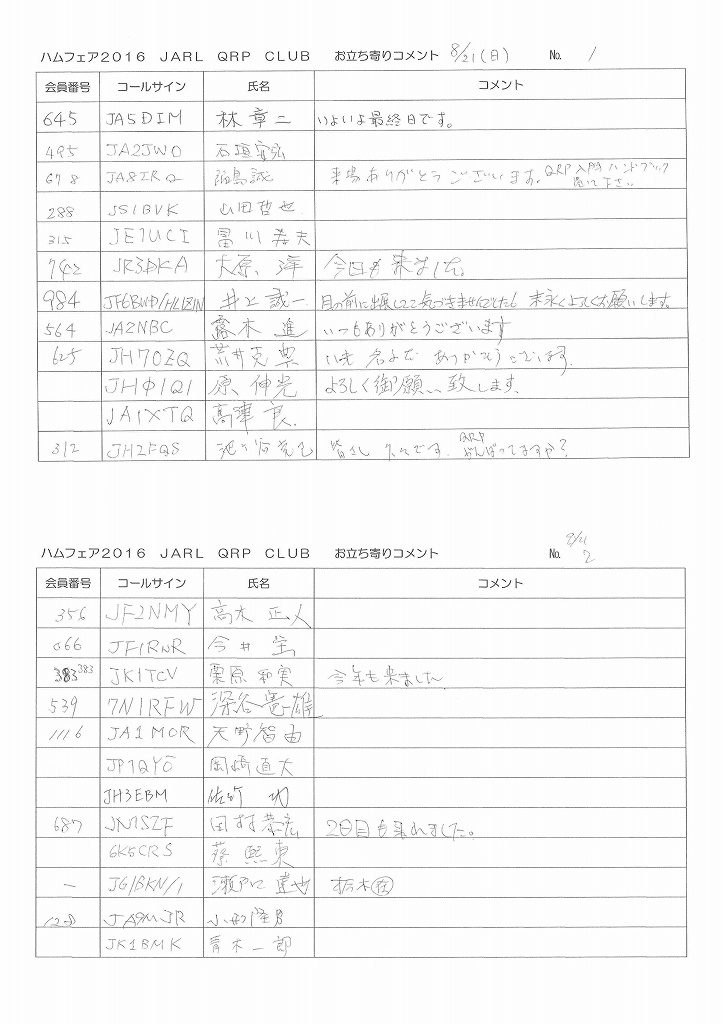 ハムフェア2016 JARL QRP CLUB お立ち寄りコメント 8/21(日) No. 1
会員番号 コールサイン 氏名 コメント
645 JA5DIM 林 章二 いよいよ最終日です。
495 JA2JWO 石垣
678 JA8IRQ 福島 誠 来場ありがとうございます。QRP入門ハンドブック
買って下さい
288 JS1BVK 山田哲也
315 JE1UCI 冨川寿夫
742 JR3DKA 大原 洋 今日も来ました。
984 井上誠一 目の前に出展してて気づきませんでした 末永くよろしくお願いします。
564 JA2NBC 露木 進 いつもありがとうございます
625 JH7OZQ 荒井克 ありがとうございます。
JHΦIQI 原 伸光 よろしく御願い致します。
JA1XTQ 高 良
312 JH2FQS 皆さん 久々です。QRP
がんばってますか?
ハムフェア2016 JARL QRP CLUB お立ち寄りコメント No. 2
会員番号 コールサイン 氏名 コメント
356 JF2NMY 高木 正人
066 JF1RNR 今井
383 383 JK1TCV 栗原 和実 今年も来ました
539 7N1RFW 深谷憲雄
1116 JA1MOR 天野智由
岡崎直大
JH3EBM 佐竹 功
687 JN1SZF 田村恭宏 2日目も来れました。
6K5CRS 蔡 熙東
— JG1BKN/1 瀬戸口 達也 栃木(在)
128 JA9MJR
JK1BMK 青木一郎